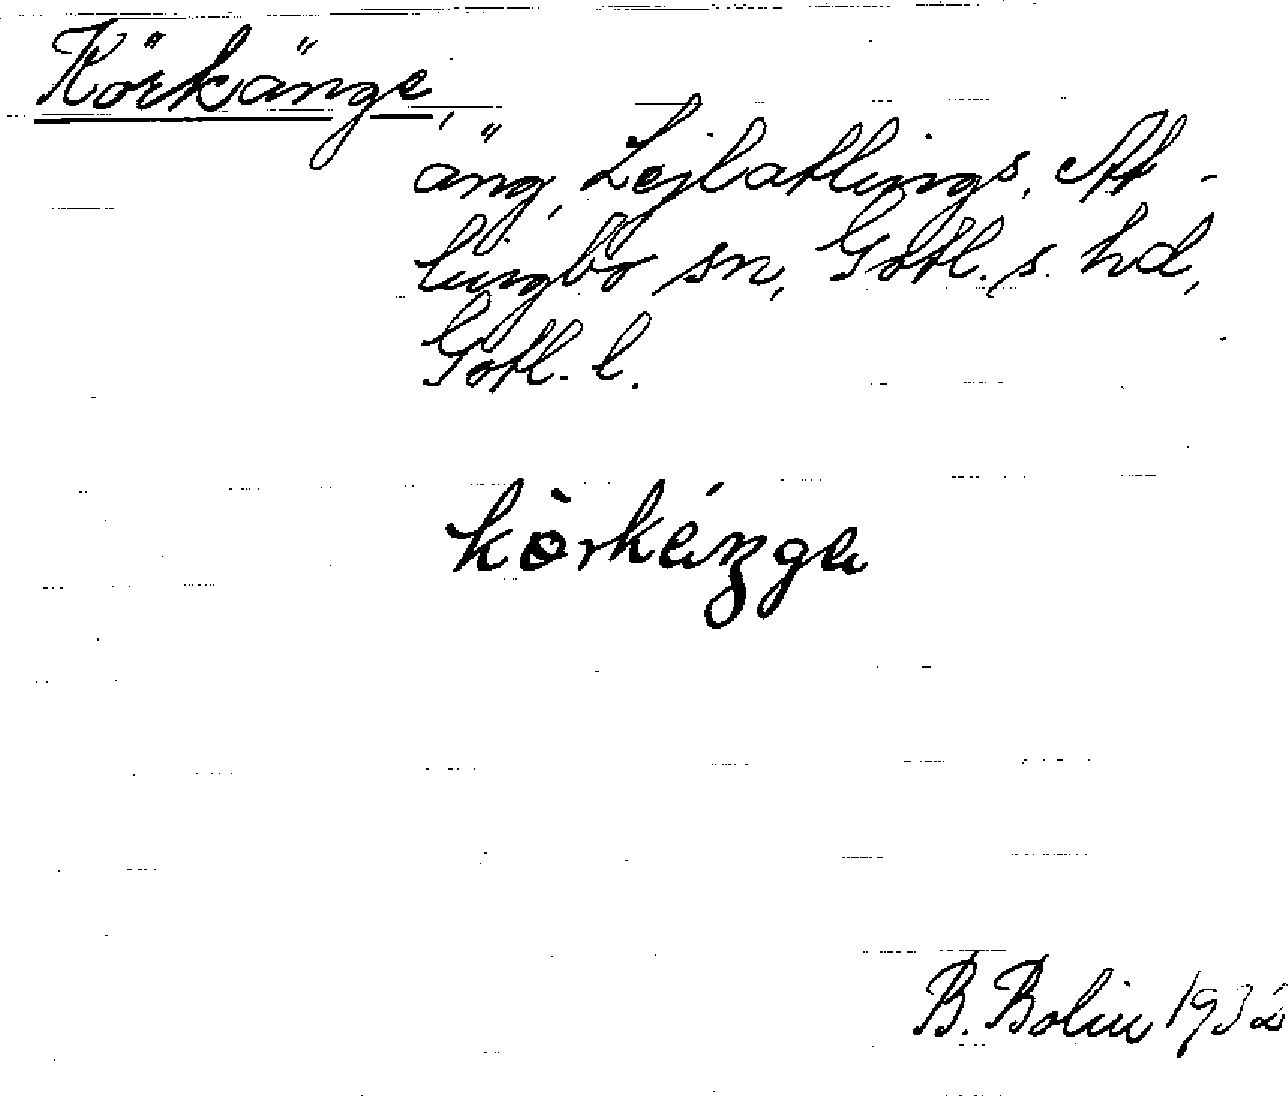 Körkänge,
äng, Lejlatlings, At-
lingbo sn, Gotl. s. hd,
Gotl. l.
kòrkéŋga
B. Bolin 1932